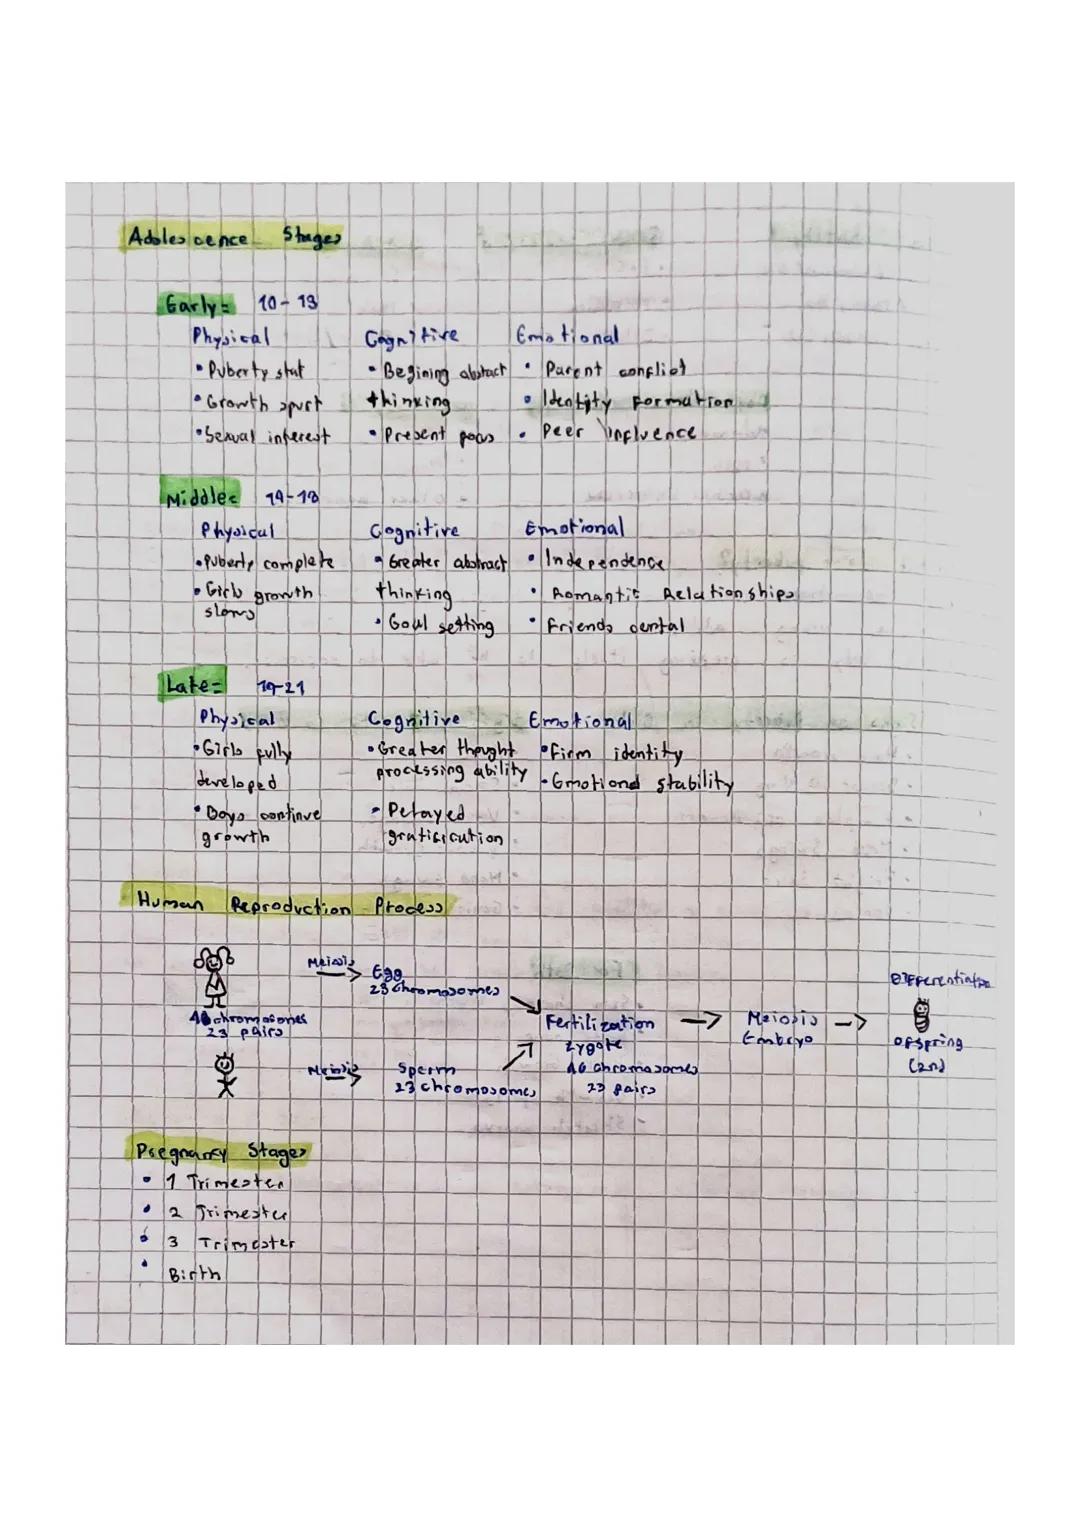 Adolescence Stages
Early= 10-13
Physical Cognitive Emotional
• Puberty stat • Begining abstract • Parent conflict
• Growth spurt thinking • Identity formation
• Sexual interest • Present focus • Peer influence
Middle= 14-18
Physical Cognitive Emotional
• Puberty complete • Greater abstract • Independence
• Girls growth thinking • Romantic Relationships
slows • Goal setting • Friends
Late= 19-21
Physical Cognitive Emotional
• Girls fully • Greater thought • Firm identity
developed processing ability • Emotional stability
• Boys continue • Delayed
growth gratification
Human Reproduction Process
Meiosis Egg
23 chromosomes
46 chromosomes
23 pairs
Meiosis Sperm
23 chromosomes
Fertilization
Zygote
46 chromosomes
23 pairs
Meiosis
Embryo
Differentiation
offspring
(2n)
Pregnancy Stages
• 1 Trimester
• 2 Trimester
• 3 Trimester
• Birth